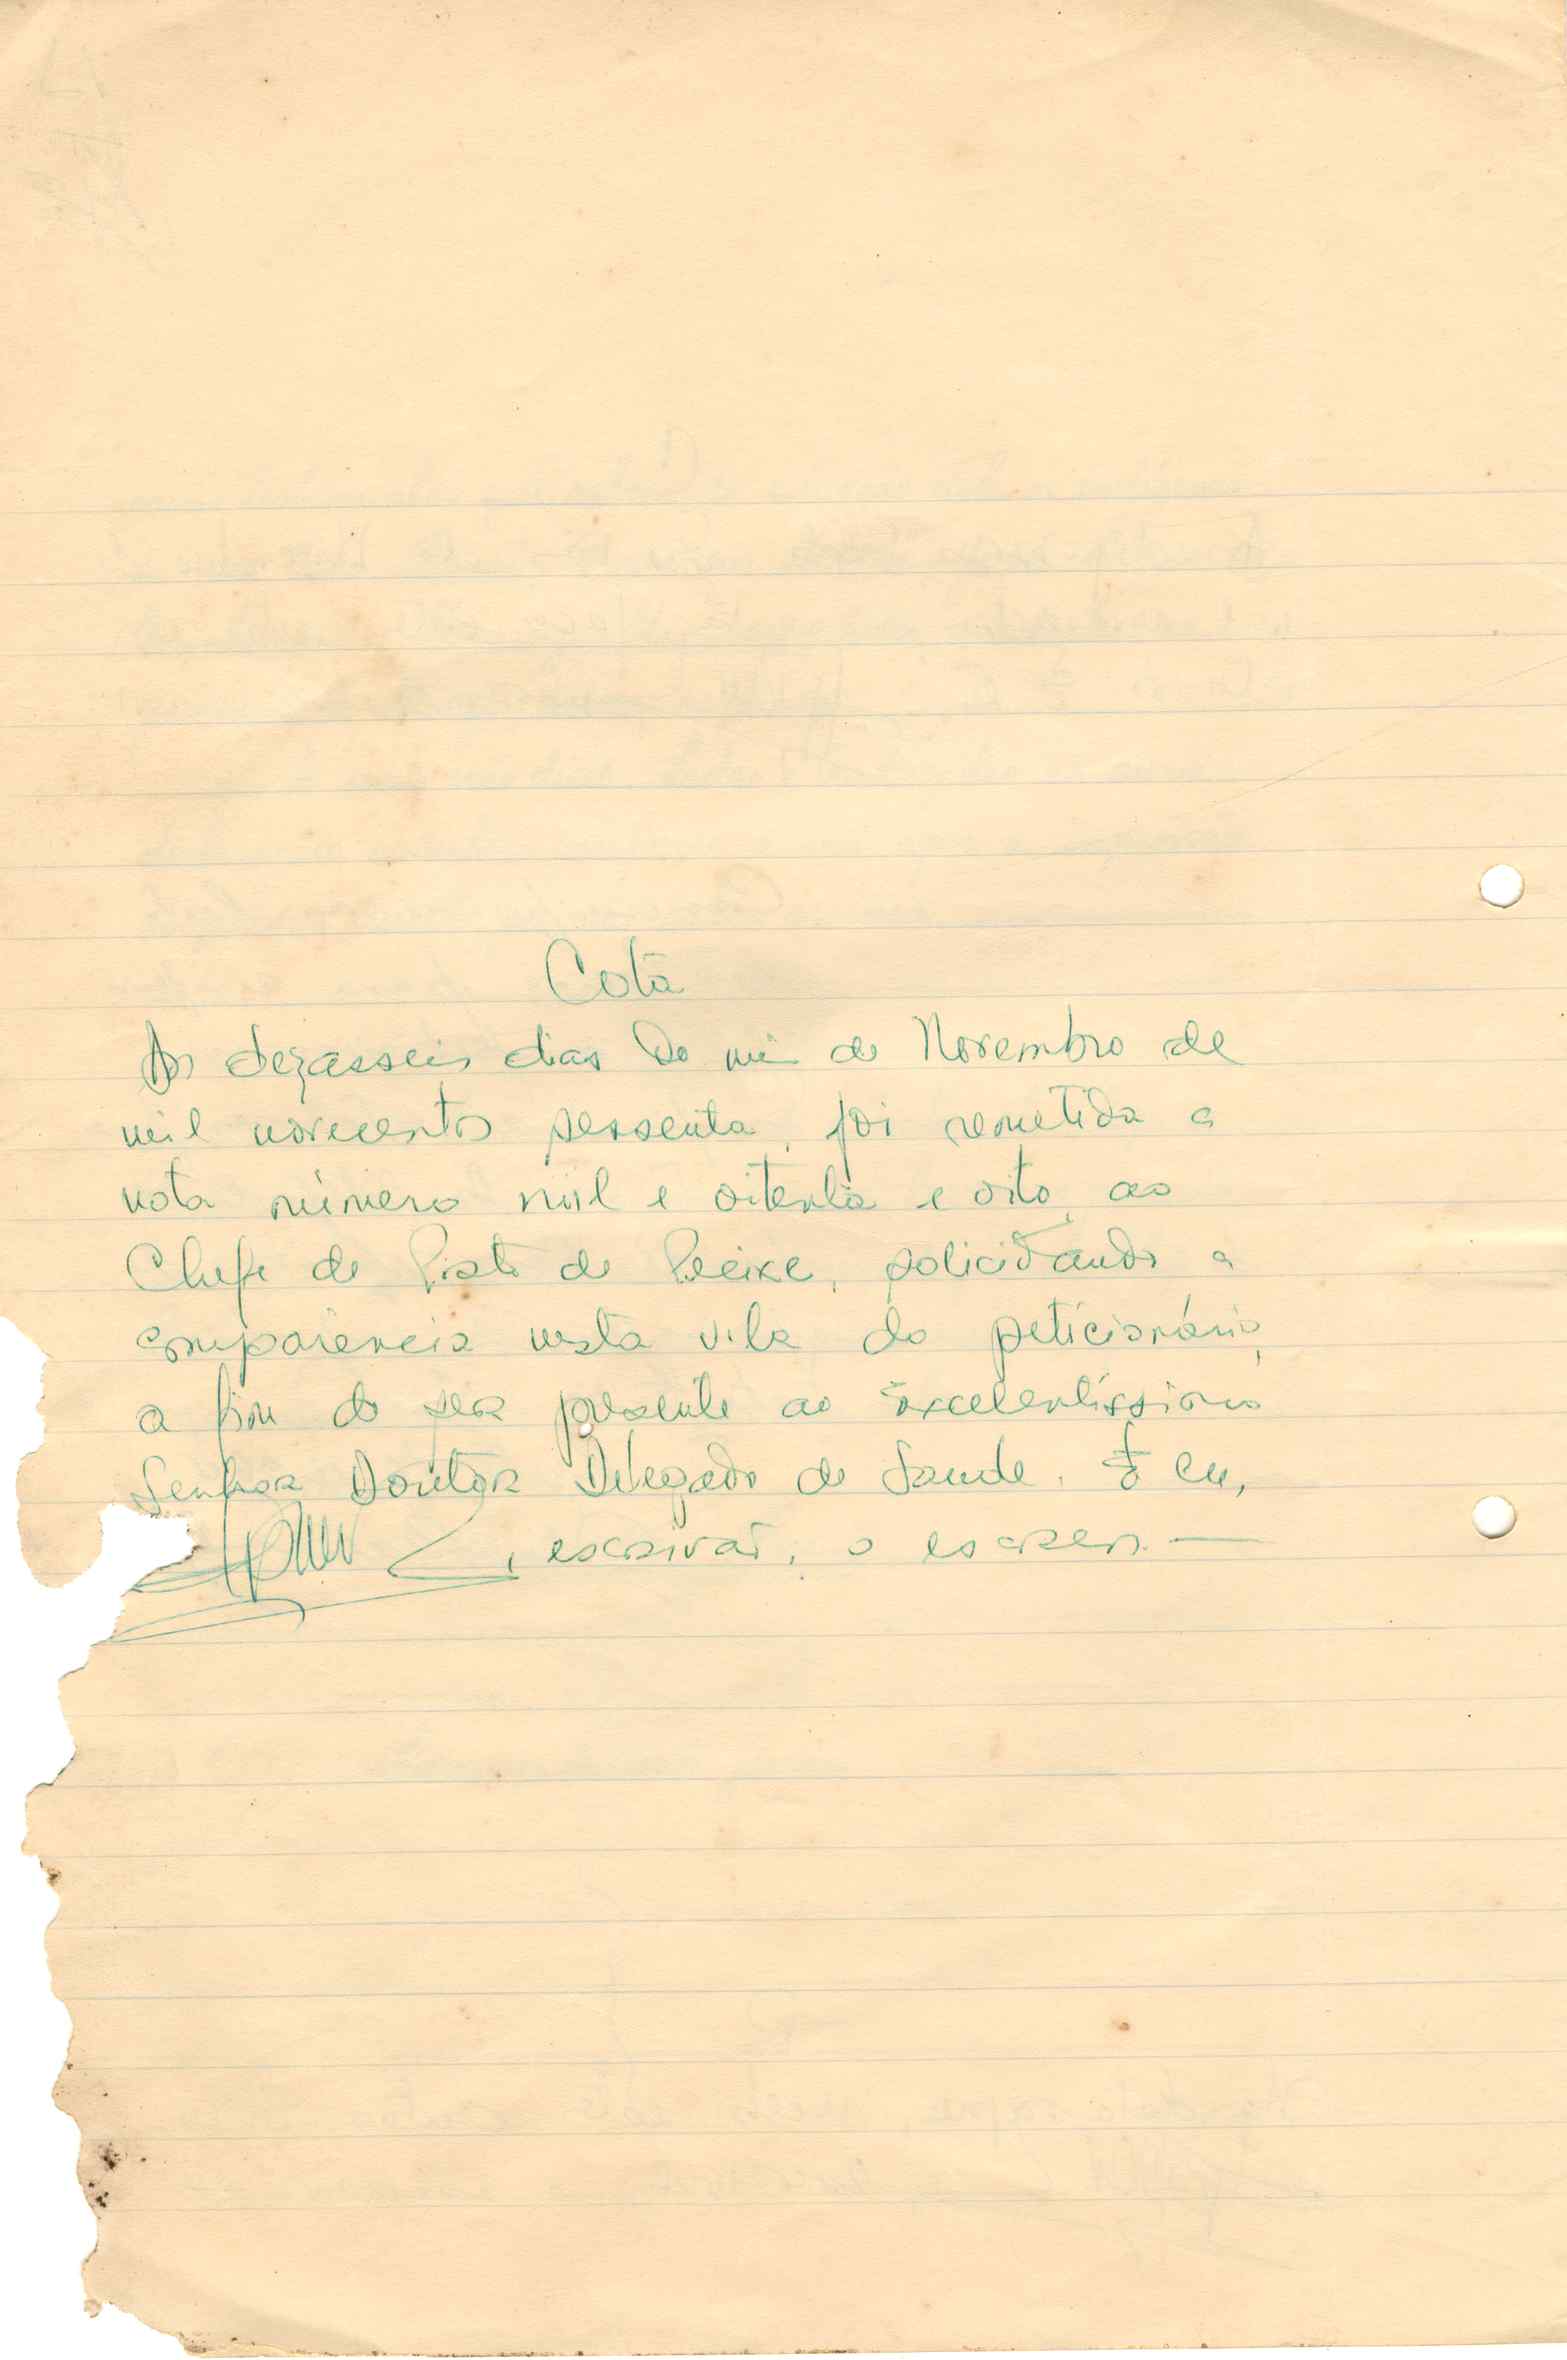 Cota
Aos dezasseis dias do mês de Novembro de
mil novecentos sessenta, foi remetida a
nota número mil e oitenta e oito, ao
Chefe de Posto de Peixe, solicitando a
comparência nesta vila do peticionário,
a fim de ser presente ao Excelentíssimo
Senhor Doutor Delegado de Saude. E eu,
, escrivão, o escrevi. —